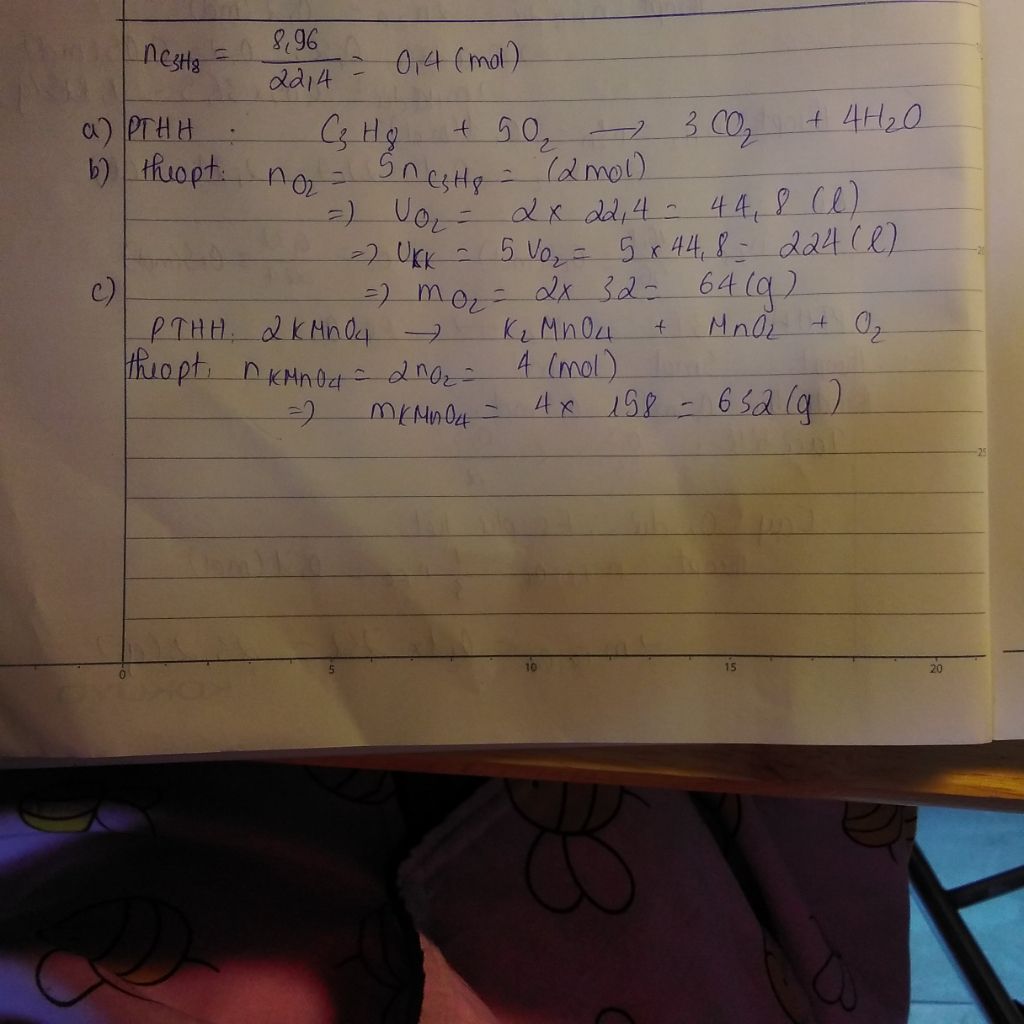 nC3H8 = 8,96 / 22,4 = 0,4 (mol)
a) PTHH : C3H8 + 5O2 → 3CO2 + 4H2O
b) theopt: nO2 = 5nC3H8 = (2mol)
=) VO2 = 2 x 22,4 = 44,8 (l)
=) VKK = 5 VO2 = 5 x 44,8 = 224 (l)
c) =) mO2 = 2x 32 = 64 (g)
PTHH: 2KMnO4 → K2MnO4 + MnO2 + O2
theopt: nKMnO4 = 2nO2 = 4 (mol)
=) mKMnO4 = 4 x 158 = 632 (g)
25
0 5 10 15 20